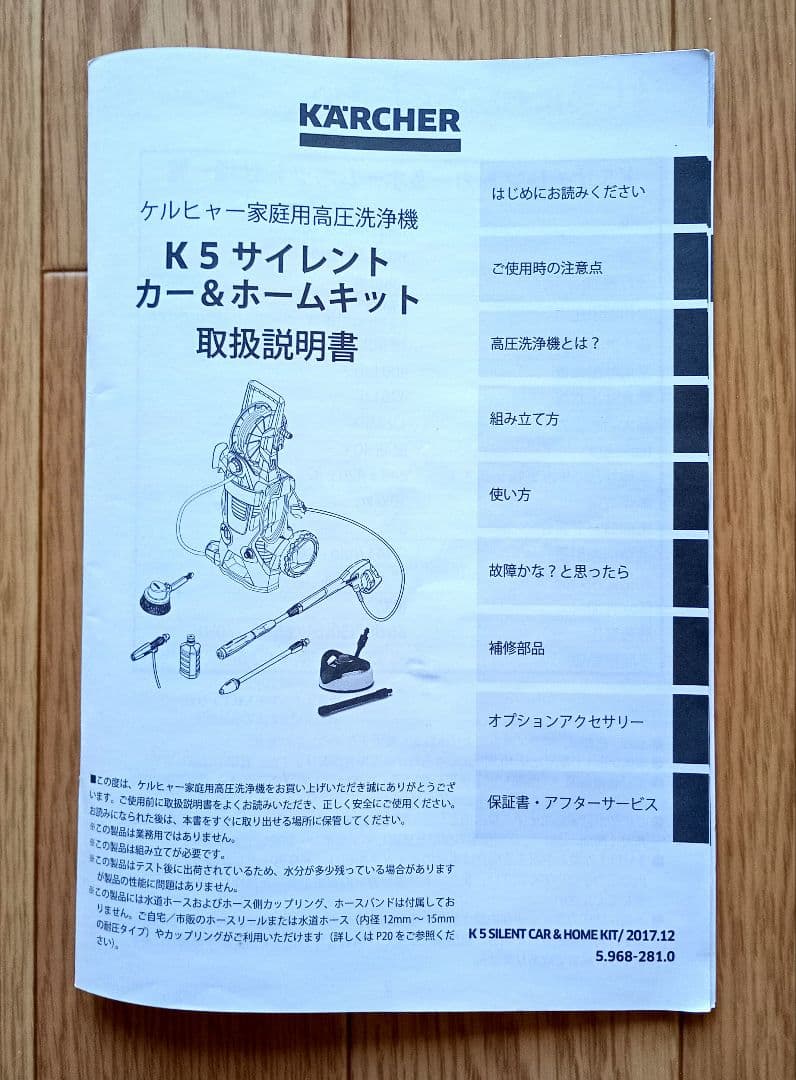 KÄRCHER
ケルヒャー家庭用高圧洗浄機
K 5 サイレント
カー＆ホームキット
取扱説明書
はじめにお読みください
ご使用時の注意点
高圧洗浄機とは？
組み立て方
使い方
故障かな？と思ったら
補修部品
オプションアクセサリー
保証書・アフターサービス
■この度は、ケルヒャー家庭用高圧洗浄機をお買い上げいただき誠にありがとうござ
います。ご使用前に取扱説明書をよくお読みいただき、正しく安全にご使用ください。
お読みになられた後は、本書をすぐに取り出せる場所に保管してください。
※この製品は業務用ではありません。
※この製品は組み立てが必要です。
※この製品はテスト後に出荷されているため、水分が多少残っている場合があります
が製品の性能に問題はありません。
※この製品には水道ホースおよびホース側カップリング、ホースバンドは付属してお
りません。ご自宅／市販のホースリールまたは水道ホース（内径 12mm ～ 15mm
の耐圧タイプ）やカップリングがご利用いただけます（詳しくは P20 をご参照くだ
さい）。
K 5 SILENT CAR & HOME KIT/ 2017.12
5.968-281.0